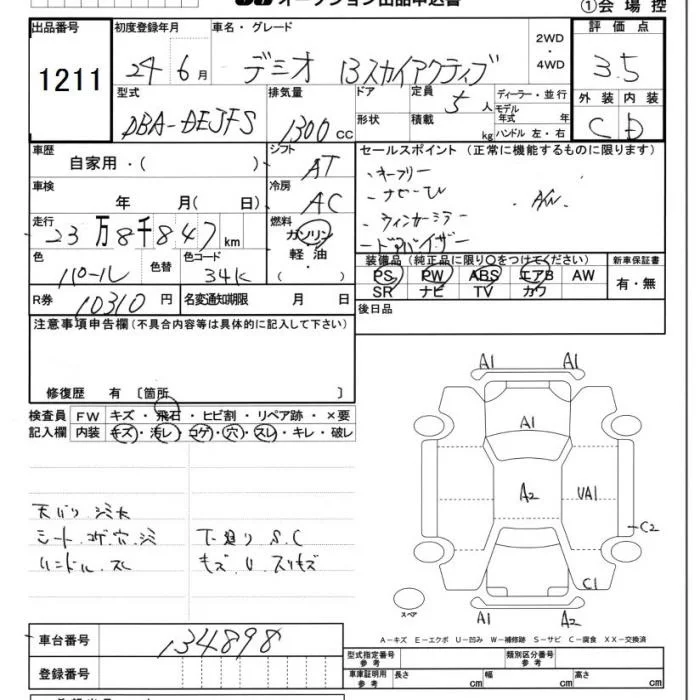 オークション出品申込書
①会場控
出品番号
1211
初度登録年月
24年6月
車名・グレード
デミオ 13スカイアクティブ
2WD
・
4WD
評価点
3.5
外装 内装
C D
型式
DBA-DEJFS
排気量
1300 cc
ドア
形状
定員
5人
積載
kg
ディーラー・並行
モデル
年式 年
ハンドル 左・右
車歴
自家用・( )
シフト
AT
セールスポイント (正常に機能するものに限ります)
・キーフリー
・ナビTV
・ウィンカーミラー
・ドアバイザー
・AW
車検
年 月( 日)
冷房
AC
走行
23万8千847km
燃料
ガソリン
軽油
( )
色
パール
色替
色コード
34K
装備品 (純正品に限り○をつけてください)
PS PW ABS エアB AW
SR ナビ TV カワ
新車保証書
有・無
R券
10310円
名変通知期限 月 日
後日品
注意事項申告欄 (不具合内容等は具体的に記入して下さい)
修復歴 有 〔箇所 〕
検査員
記入欄
FW キズ・飛石・ヒビ割・リペア跡・×要
内装 キズ・汚レ・コゲ・穴・スレ・キレ・破レ
天バリ シミ大
シート、コゲ穴、シミ
ハンドル、スレ
下廻り S.C
キズ U スリキズ
A1 A1
A1
A2
UA1
C2
C1
A1 A2
スペア
A-キズ E-エクボ U-凹み W-補修跡 S-サビ C-腐食 XX-交換済
車台番号
134898
登録番号
型式指定番号
参考
類別区分番号
参考
車庫証明用
参考
長さ cm
幅 cm
高さ cm